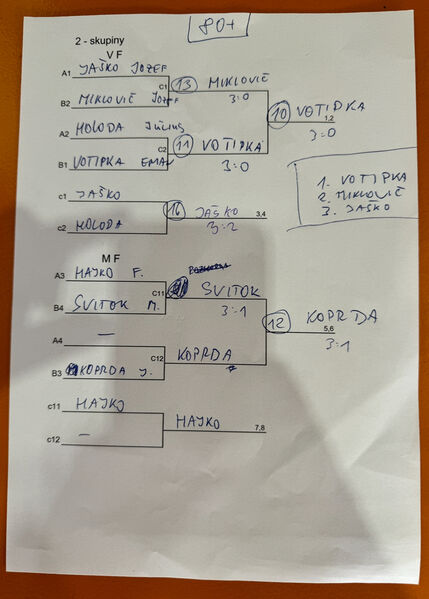 80+
2 - skupiny
VF
A1 JAŠKO JOZEF
C1 13 MIKLOVIČ
3:0
B2 MIKLOVIČ JOZEF
10 VOTIPKA
1,2
3:0
A2 HOLODA JÚLIUS
C2 11 VOTIPKA
3:0
B1 VOTIPKA EMAN
1. VOTIPKA
2. MIKLOVIČ
3. JAŠKO
c1 JAŠKO
16 JAŠKO
3,4
3:2
c2 HOLODA
MF
A3 HAJKO F.
C11 SVITOK
3:1
B4 SVITOK M.
12 KOPRDA
5,6
3:1
A4 —
C12 KOPRDA
B3 KOPRDA J.
c11 HAJKO
HAJKO
7,8
c12 —